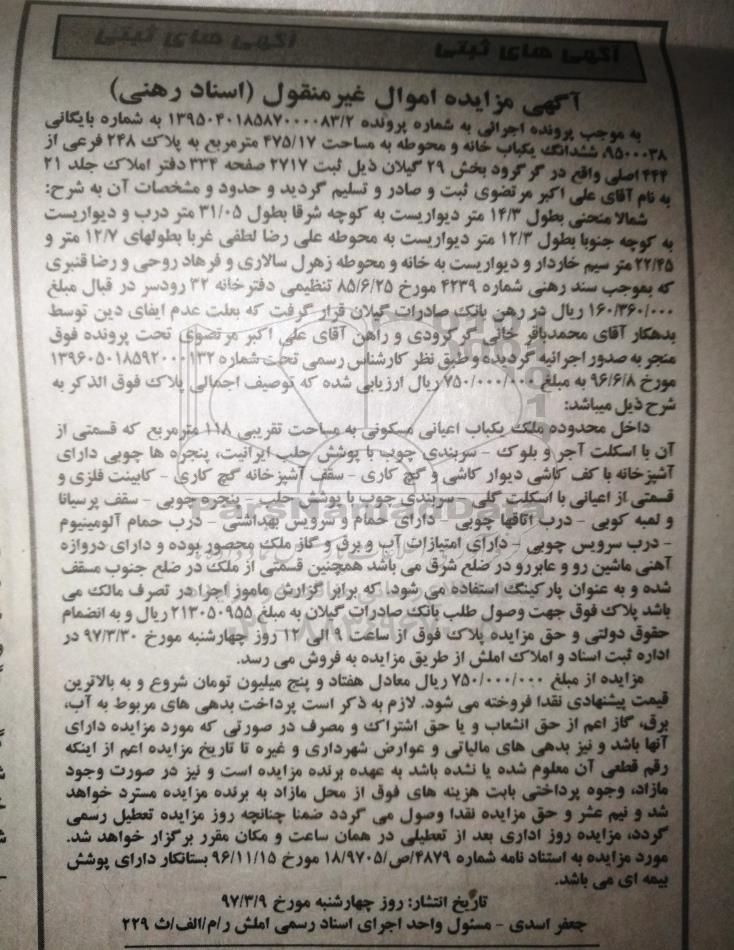 آگهی های ثبتی
آگهی مزایده اموال غیرمنقول (اسناد رهنی)
به موجب پرونده اجرائی به شماره پرونده ۱۳۹۵۰۴۰۱۸۵۸۷۰۰۰۰۸۳/۲ به شماره بایگانی
۹۵۰۰۰۳۸، ششدانگ یکباب خانه و محوطه به مساحت ۴۷۵/۱۷ مترمربع به پلاک ۲۴۸ فرعی از
۴۴۴ اصلی واقع در گرگرود بخش ۲۹ گیلان ذیل ثبت ۲۷۱۷ صفحه ۳۳۴ دفتر املاک جلد ۲۱
به نام آقای علی اکبر مرتضوی ثبت و صادر و تسلیم گردید و حدود و مشخصات آن به شرح:
شمالا منحنی بطول ۱۴/۳ متر دیواریست به کوچه شرقا بطول ۳۱/۰۵ متر درب و دیواریست
به کوچه جنوبا بطول ۱۲/۳ متر دیواریست به محوطه علی رضا لطفی غربا بطولهای ۱۲/۷ متر و
۲۲/۴۵ متر سیم خاردار و دیواریست به خانه و محوطه زهرل سالاری و فرهاد روحی و رضا قنبری
که بموجب سند رهنی شماره ۴۲۳۹ مورخ ۸۵/۶/۲۵ تنظیمی دفترخانه ۳۲ رودسر در قبال مبلغ
۱۶۰/۳۶۰/۰۰۰ ریال در رهن بانک صادرات گیلان قرار گرفت که بعلت عدم ایفای دین توسط
بدهکار آقای محمدباقر خانی گرکرودی و راهن آقای علی اکبر مرتضوی تحت پرونده فوق
منجر به صدور اجرائیه گردیده و طبق نظر کارشناس رسمی تحت شماره ۱۳۹۶۰۵۰۱۸۵۹۲۰۰۰۱۳۲
مورخ ۹۶/۶/۸ به مبلغ ۷۵۰/۰۰۰/۰۰۰ ریال ارزیابی شده که توصیف اجمالی پلاک فوق الذکر به
شرح ذیل میباشد:
داخل محدوده ملک یکباب اعیانی مسکونی به مساحت تقریبی ۱۱۸ مترمربع که قسمتی از
آن با اسکلت آجر و بلوک - سربندی چوب با پوشش حلب ایرانیت، پنجره ها چوبی دارای
آشپزخانه با کف کاشی دیوار کاشی و گچ کاری - سقف آشپزخانه گچ کاری - کابینت فلزی و
قسمتی از اعیانی با اسکلت گلی - سربندی چوب با پوشش حلب - پنجره چوبی - سقف پرسیانا
و لمبه کوبی - درب اتاقها چوبی - دارای حمام و سرویس بهداشتی - درب حمام آلومینیوم
- درب سرویس چوبی - دارای امتیازات آب و برق و گاز ملک محصور بوده و دارای دروازه
آهنی ماشین رو و عابررو در ضلع شرق می باشد همچنین قسمتی از ملک در ضلع جنوب مسقف
شده و به عنوان پارکینگ استفاده می شود. که برابر گزارش ماموز اجرا در تصرف مالک می
باشد پلاک فوق جهت وصول طلب بانک صادرات گیلان به مبلغ ۲۱۳۰۵۰۹۵۵ ریال و به انضمام
حقوق دولتی و حق مزایده پلاک فوق از ساعت ۹ الی ۱۲ روز چهارشنبه مورخ ۹۷/۳/۳۰ در
اداره ثبت اسناد و املاک املش از طریق مزایده به فروش می رسد.
مزایده از مبلغ ۷۵۰/۰۰۰/۰۰۰ ریال معادل هفتاد و پنج میلیون تومان شروع و به بالاترین
قیمت پیشنهادی نقدا فروخته می شود. لازم به ذکر است پرداخت بدهی های مربوط به آب،
برق، گاز اعم از حق انشعاب و یا حق اشتراک و مصرف در صورتی که مورد مزایده دارای
آنها باشد و نیز بدهی های مالیاتی و عوارض شهرداری و غیره تا تاریخ مزایده اعم از اینکه
رقم قطعی آن معلوم شده یا نشده باشد به عهده برنده مزایده است و نیز در صورت وجود
مازاد، وجوه پرداختی بابت هزینه های فوق از محل مازاد به برنده مزایده مسترد خواهد
شد و نیم عشر و حق مزایده نقدا وصول می گردد ضمنا چنانچه روز مزایده تعطیل رسمی
گردد، مزایده روز اداری بعد از تعطیلی در همان ساعت و مکان مقرر برگزار خواهد شد.
مورد مزایده به استناد نامه شماره ۱۸/۹۷۰۵/ص/۴۸۷۹ مورخ ۹۶/۱۱/۱۵ بستانکار دارای پوشش
بیمه ای می باشد.
تاریخ انتشار: روز چهارشنبه مورخ ۹۷/۳/۹
جعفر اسدی - مسئول واحد اجرای اسناد رسمی املش ر/م/الف/ث ۲۲۹
ParsNamadData